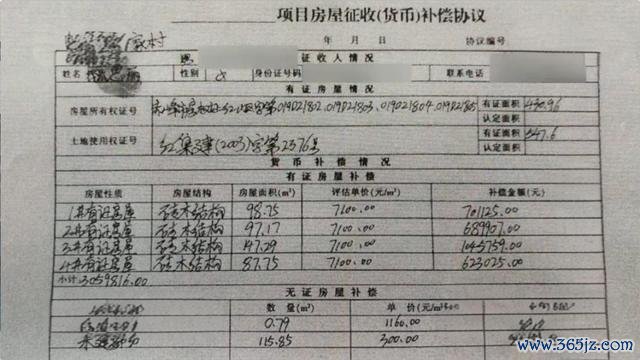 项目房屋征收(货币)补偿协议
村 年 月 日 协议编号
征收人情况
姓名 性别 女 身份证号码 联系电话
有证房屋情况
房屋所有权证号 字第019021802、019021803、019021804、019021805 有证面积 430.96
认定面积
土地使用权证号 红集建(2003)字第2376号 有证面积 547.6
认定面积
货币补偿情况
有证房屋补偿
房屋性质 房屋结构 房屋面积(m²) 评估单价(元/m²) 补偿金额(元)
1#有证房屋 砖木结构 98.75 7100.00 701125.00
2#有证房屋 砖木结构 97.17 7100.00 689907.00
3#有证房屋 砖木结构 147.29 7100.00 1045759.00
4#有证房屋 砖木结构 87.75 7100.00 623025.00
小计:3059816.00
无证房屋补偿
数量(m²) 单价(元/m²)
0.79 1160.00
115.85 300.00
www.365jz.com